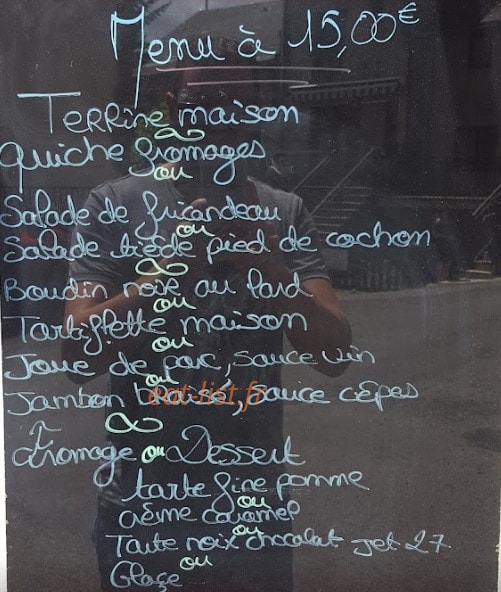 Menu à 15,00€
Terrine maison
Quiche fromages
ou
Salade de fricandeau
ou
Salade tiède pied de cochon
Boudin noir au lard
ou
Tartiflette maison
ou
Joue de porc, sauce vin
ou
Jambon braisé, sauce cèpes
eat-list.fr
Fromage ou Dessert
tarte fine pomme
ou
crème caramel
ou
Tarte noix chocolat jet 27
ou
Glace